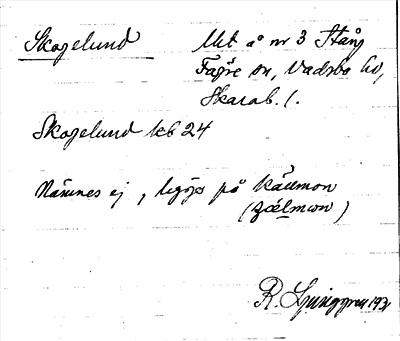 Skogelund
Utt å nr 3 Stång
Fägre sn, Vadsbo hd,
Skarab. l.
Skogelund kb 24
Nämnes ej, ligger på Källmon
(çälmon)
R. Ljunggren 1931